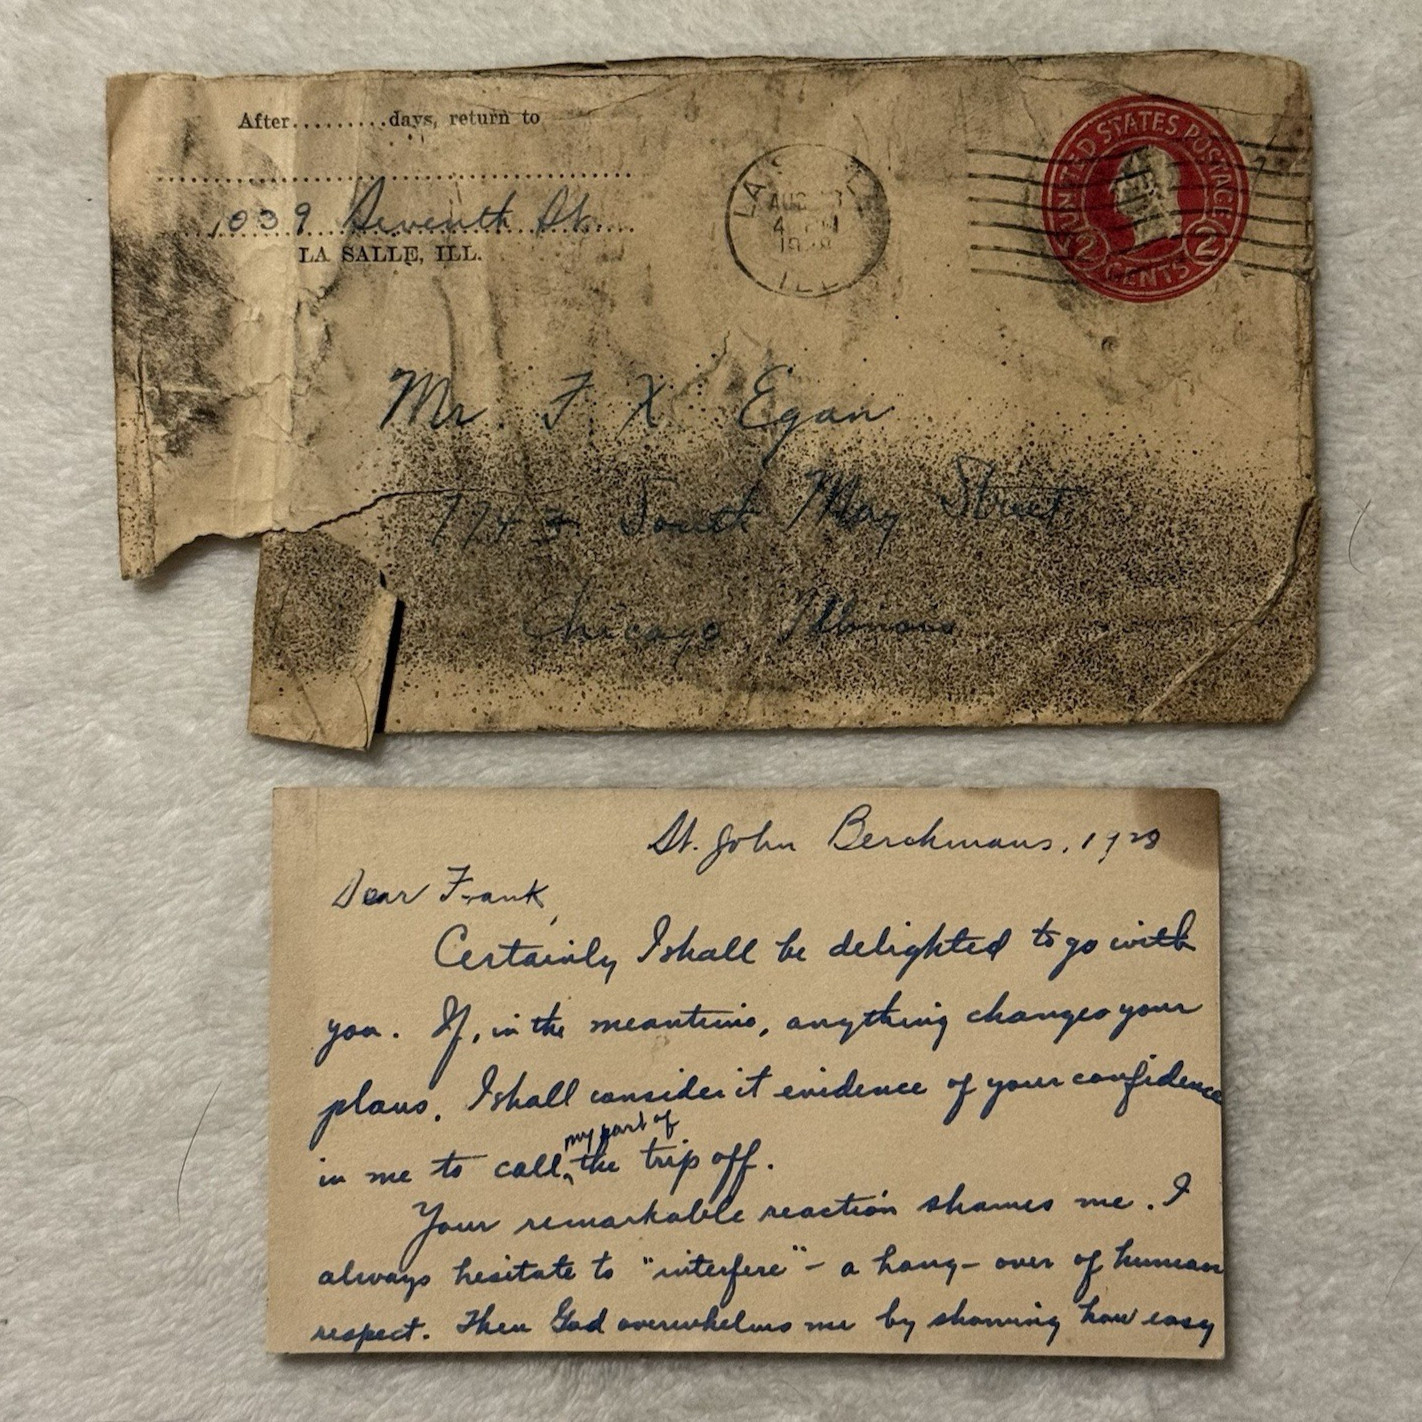 After.........days, return to
1039 Seventh St.
LA SALLE, ILL.
LA
AUG
4 PM
1928
ILL
UNITED STATES POSTAGE
2 CENTS 2
Mr. F X Egan
South May Street
Chicago, Illinois
St. John Berchmans, 1928
Dear Frank,
Certainly I shall be delighted to go with
you. If, in the meantime, anything changes your
plans, I shall consider it evidence of your confidence
my part of
in me to call the trip off.
Your remarkable reaction shames me. I
always hesitate to "interfere" - a hang-over of human
respect. Then God overwhelms me by showing how easy